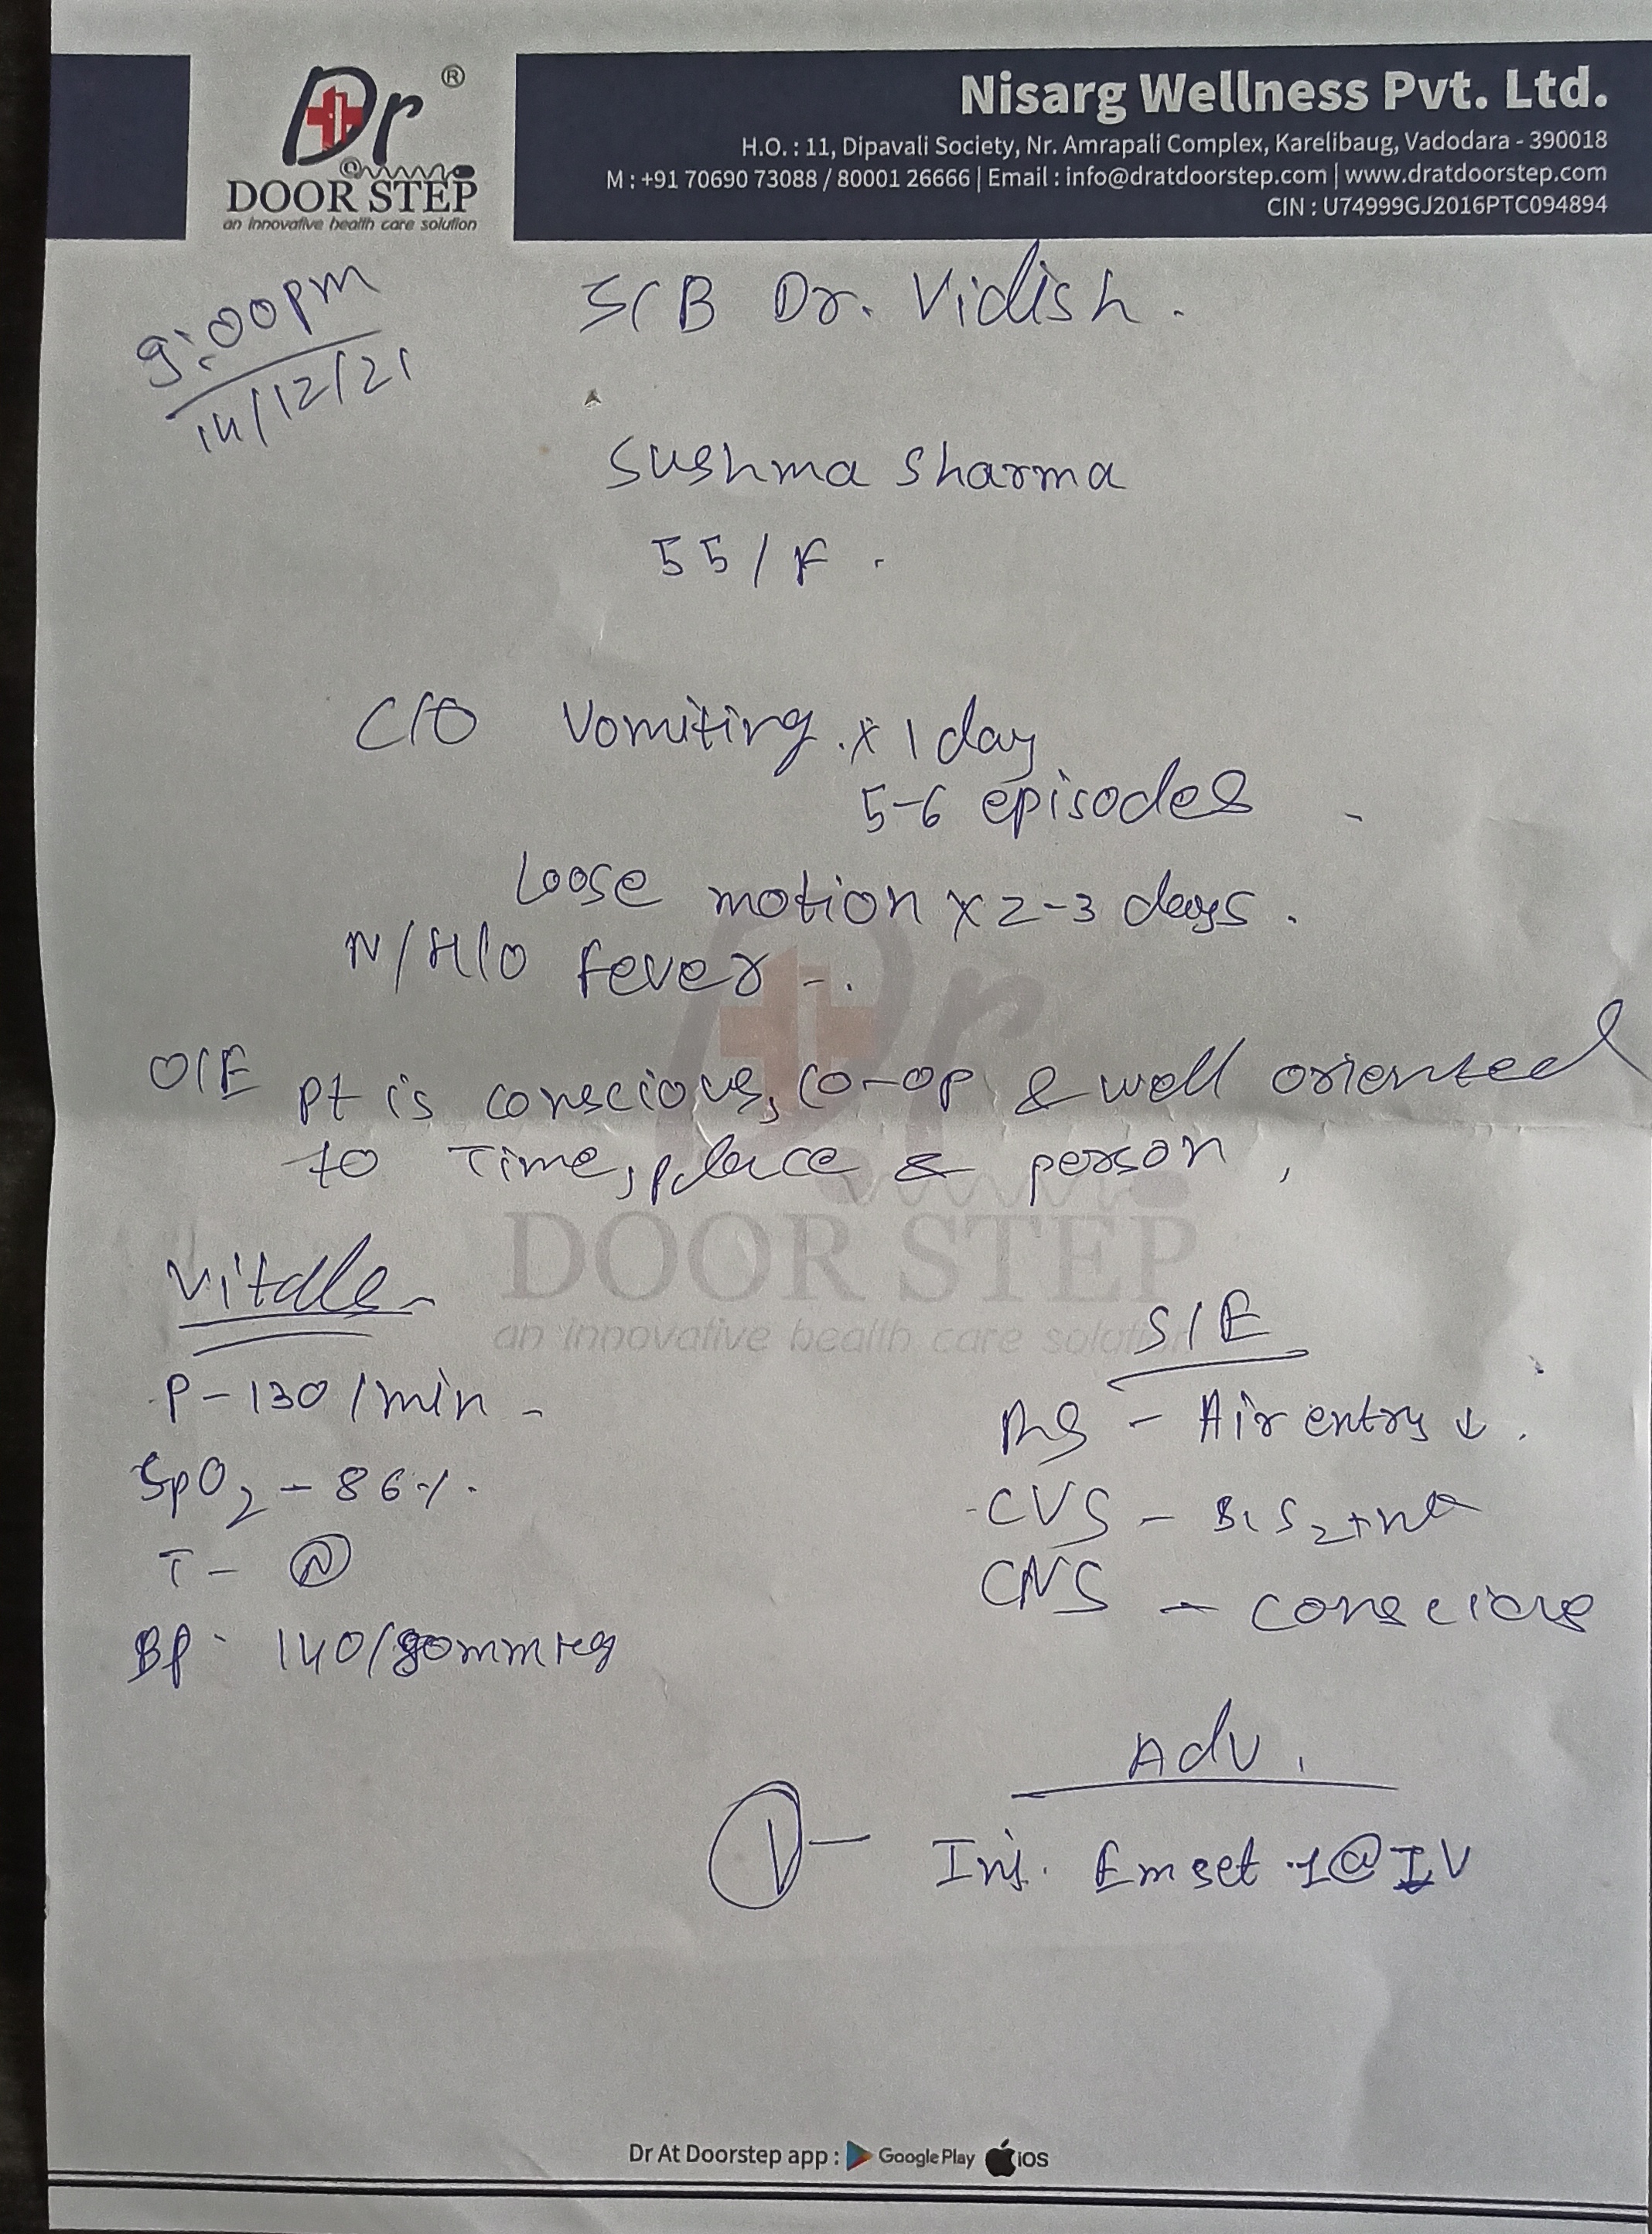 Dr ®
DOOR STEP
an innovative health care solution
Nisarg Wellness Pvt. Ltd.
H.O. : 11, Dipavali Society, Nr. Amrapali Complex, Karelibaug, Vadodara - 390018
M : +91 70690 73088 / 80001 26666 | Email : info@dratdoorstep.com | www.dratdoorstep.com
CIN : U74999GJ2016PTC094894
9:00pm
14/12/21
S/B Dr. Vidish.
Sushma Sharma
55/F.
C/O Vomiting. x 1 day
5-6 episodes
Loose motion x 2-3 days.
N/H/O fever -.
O/E pt is conscious, co-op & well oriented
to Time, place & person,
Dr
DOOR STEP
an innovative health care solution
Vitals
P - 130/min -
SpO2 - 86%.
T - (N)
BP - 140/90mmHg
S/E
RS - Air entry ↓.
CVS - S1S2+
CNS - conscious
Adv.
Inj. Emset 1@IV
Dr At Doorstep app : Google Play iOS